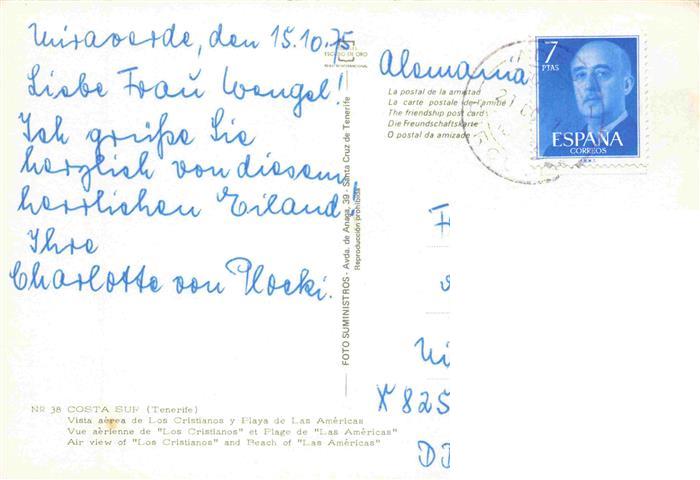 Miraverde, den 15.10.75
Liebe Frau Wengel!
Ich grüße Sie
herzlich von diesem
herrlichen Eiland!
Ihre
Charlotte von Plocki.
Nº 38 COSTA SUR (Tenerife)
Vista aérea de Los Cristianos y Playa de Las Américas
Vue aérienne de "Los Cristianos" et Plage de "Las Américas"
Air view of "Los Cristianos" and Beach of "Las Américas"
ESCUDO DE ORO
FOTO SUMINISTROS - Avda. de Anaga, 39 - Santa Cruz de Tenerife
Reproducción prohibida
Alemania
La postal de la amistad
La carte postale de l'amitié
The friendship post card
Die Freundschaftskarte
O postal da amizade
7
PTAS
ESPAÑA
CORREOS
X 825